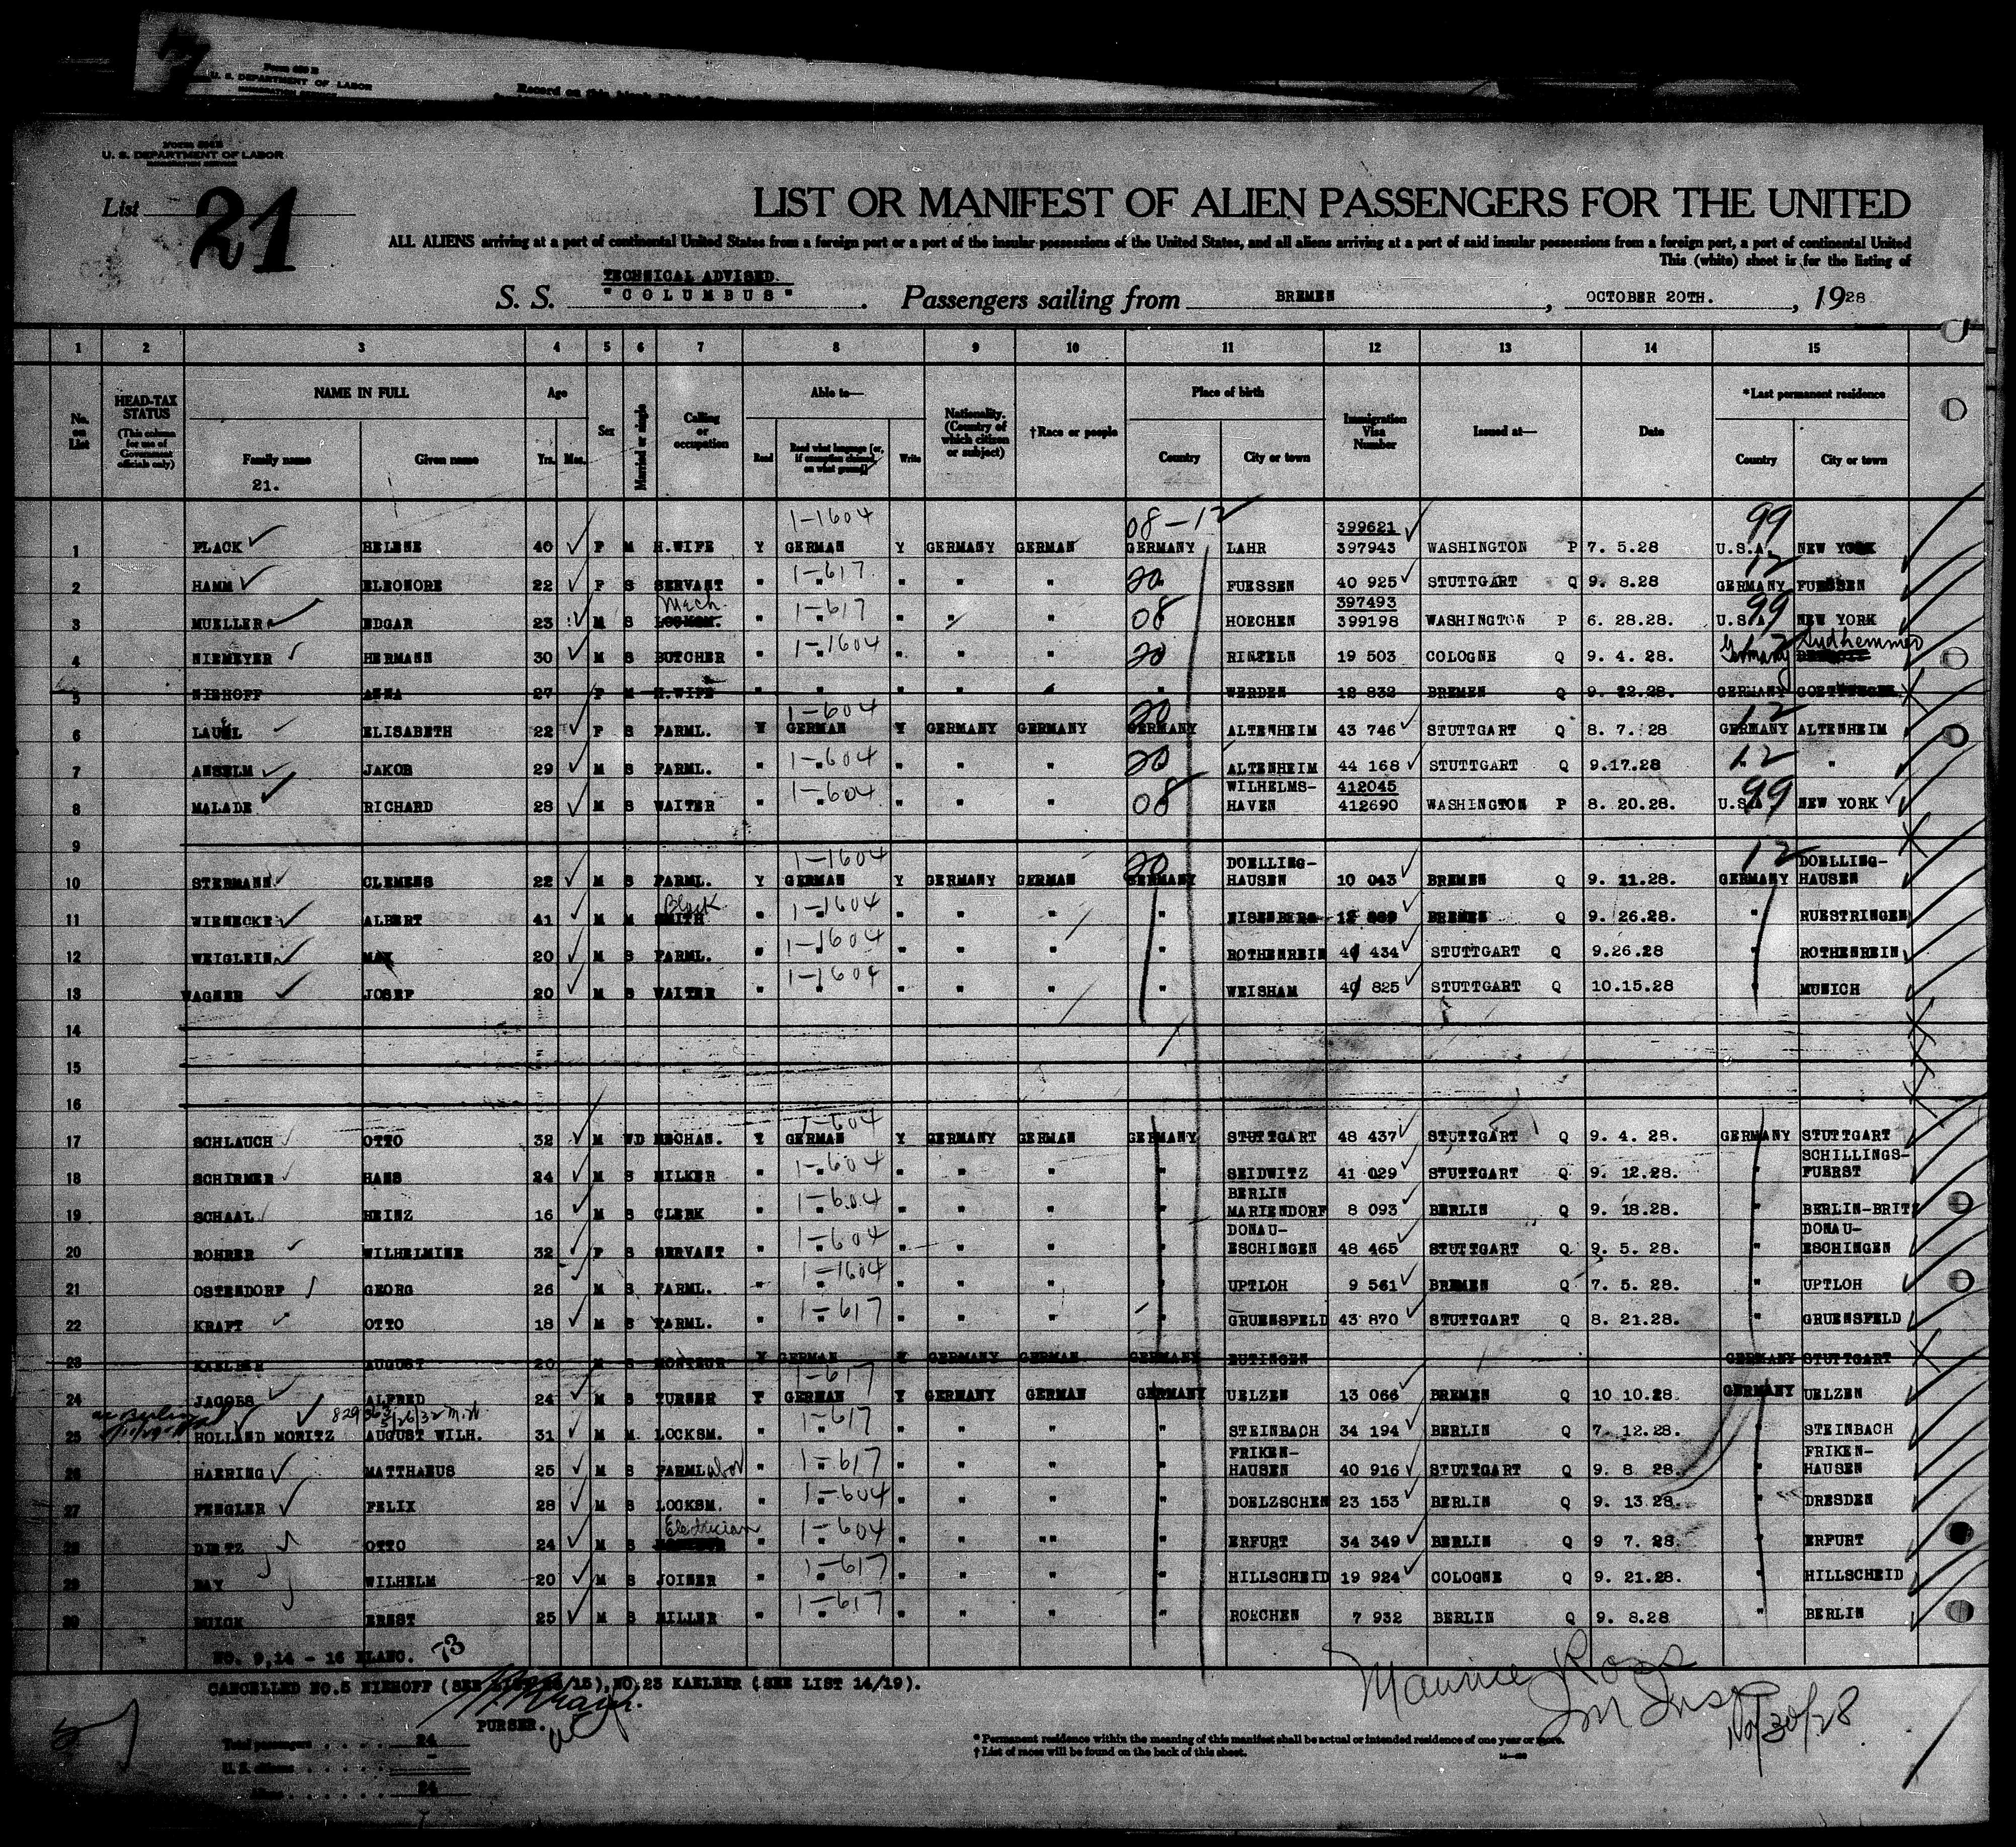 U. S. DEPARTMENT OF LABOR
Record on this
Form
U. S. DEPARTMENT OF LABOR
List 21
LIST OR MANIFEST OF ALIEN PASSENGERS FOR THE UNITED
ALL ALIENS arriving at a port of continental United States from a foreign port or a port of the insular possessions of the United States, and all aliens arriving at a port of said insular possessions from a foreign port, a port of continental United
This (white) sheet is for the listing of
TECHNICAL ADVISED.
S. S. "COLUMBUS". Passengers sailing from BREMEN, OCTOBER 20TH., 1928
1 2 3 4 5 6 7 8 9 10 11 12 13 14 15
No. on List
HEAD-TAX STATUS (This column for use of Government officials only)
NAME IN FULL Family name Given name
21.
Age Yrs. Mos.
Sex
Married or single
Calling or occupation
Able to— Read Read what language [or, if exemption claimed, on what ground] Write
Nationality. (Country of which citizen or subject)
†Race or people
Place of birth Country City or town
Immigration Visa Number
Issued at—
Date
*Last permanent residence Country City or town
1-1604 08-12 399621 99
1 PLACK HELENE 40 F M H.WIFE Y GERMAN Y GERMANY GERMAN GERMANY LAHR 397943 WASHINGTON P 7. 5.28 U.S.A. NEW YORK
1-617 20 12
2 HAMM ELEONORE 22 F S SERVANT " " " " " FUESSEN 40 925 STUTTGART Q 9. 8.28 GERMANY FUESSEN
Mech. 1-617 08 397493 99
3 MUELLER EDGAR 23 M S LOCKSM. " " " " HOECHEN 399198 WASHINGTON P 6. 28.28. U.S.A. NEW YORK
1-1604 20 12
4 NIEMEYER HERMANN 30 M S BUTCHER " " " " " RINTELN 19 503 COLOGNE Q 9. 4. 28. Germany
5 NIEHOFF ANNA 27 F M H.WIFE " " " " " WERDEN 12 832 BREMEN Q 9. 22.28. GERMANY
1-604 20 12
6 LAUEL ELISABETH 22 F S FARML. Y GERMAN Y GERMANY GERMANY GERMANY ALTENHEIM 43 746 STUTTGART Q 8. 7. 28 GERMANY ALTENHEIM
1-604 20 12
7 ANSELM JAKOB 29 M S FARML. " " " " " ALTENHEIM 44 168 STUTTGART Q 9.17.28 "
1-604 08 WILHELMS- 412045 99
8 MALADE RICHARD 28 M S WAITER " " " " " HAVEN 412690 WASHINGTON P 8. 20.28. U.S.A. NEW YORK
9
1-1604 20 DOELLING- 12 DOELLING-
10 STERMANN CLEMENS 22 M S FARML. Y GERMAN Y GERMANY GERMAN GERMANY HAUSEN 10 043 BREMEN Q 9. 11.28. GERMANY HAUSEN
Black 1-1604
11 WIENECKE ALBERT 41 M M SMITH " " " " " BREMEN Q 9. 26.28. " RUESTRINGEN
1-1604
12 WEIGLEIN MAX 20 M S FARML. " " " " " ROTHENREIN 434 STUTTGART Q 9.26.28 ROTHENREIN
1-1604
13 WAGNER JOSEF 20 M S WAITER " " " " " WEISHAM 825 STUTTGART Q 10.15.28 " MUNICH
14
15
16
1-604
17 SCHLAUCH OTTO 32 M WD MECHAN. Y GERMAN Y GERMANY GERMAN GERMANY STUTTGART 48 437 STUTTGART Q 9. 4. 28. GERMANY STUTTGART
1-604 SCHILLINGS-
18 SCHIRMER HANS 24 M S MILKER " " " " " SEIDWITZ 41 029 STUTTGART Q 9. 12.28. " FUERST
1-604 BERLIN
19 SCHAAL HEINZ 16 M S CLERK " " " " " MARIENDORF 8 093 BERLIN Q 9. 18.28. " BERLIN-BRITZ
1-604 DONAU- DONAU-
20 ROHRER WILHELMINE 32 F S SERVANT " " " " " ESCHINGEN 48 465 STUTTGART Q 9. 5. 28. " ESCHINGEN
1-1604
21 OSTENDORF GEORG 26 M S FARML. " " " " " UPTLOH 9 561 BREMEN Q 7. 5. 28. " UPTLOH
1-617
22 KRAFT OTTO 18 M S FARML. " " " " " GRUENSFELD 43 870 STUTTGART Q 8. 21.28. " GRUENSFELD
23 KAELBER AUGUST 20 M S MONTEUR Y GERMAN Y GERMANY GERMAN GERMANY EUTINGEN GERMANY STUTTGART
1-617
24 JACOBS ALFRED 24 M S TURNER Y GERMAN Y GERMANY GERMAN GERMANY UELZEN 13 066 BREMEN Q 10 10.28. GERMANY UELZEN
1-617
25 HOLLAND MORITZ AUGUST WILH. 31 M M. LOCKSM. " " " " " STEINBACH 34 194 BERLIN Q 7. 12.28. " STEINBACH
1-617 FRIKEN- FRIKEN-
26 HAERING MATTHAEUS 25 M S FARMLabor " " " " " HAUSEN 40 916 STUTTGART Q 9. 8 28. " HAUSEN
1-604
27 FENGLER FELIX 28 M S LOCKSM. " " " " " DOELZSCHEN 23 153 BERLIN Q 9. 13 28. " DRESDEN
Electrician 1-604
28 DIETZ OTTO 24 M S " " " " " ERFURT 34 349 BERLIN Q 9 7. 28. " ERFURT
1-617
29 BAY WILHELM 20 M S JOINER " " " " " HILLSCHEID 19 924 COLOGNE Q 9. 21.28. " HILLSCHEID
1-617
30 ERNST 25 M S MILLER " " " " " ROECHEN 7 932 BERLIN Q 9. 8.28 " BERLIN
NO. 9,14 - 16 BLANC. 73
CANCELLED NO.5 NIEHOFF (SEE LIST /15), NO.23 KAELBER (SEE LIST 14/19).
PURSER.
Maurice Ross
Im Insp
Oct/30/28
Total passengers 24
U. S. citizens -
Aliens 24
* Permanent residence within the meaning of this manifest shall be actual or intended residence of one year or more.
† List of races will be found on the back of this sheet.